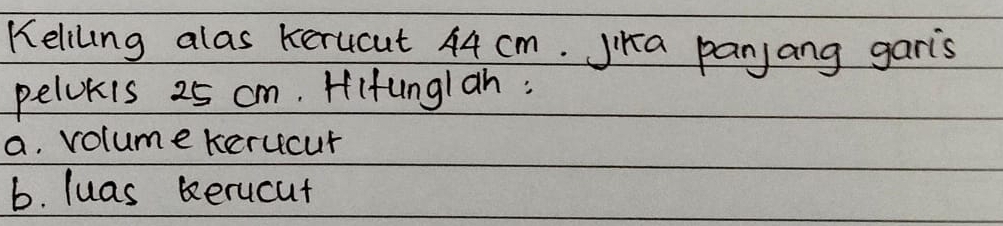 Keliling alas kerucut 44 cm. Jika panjang garis
pelukis 25 cm. Hitunglah :
a. volume kerucut
b. luas kerucut